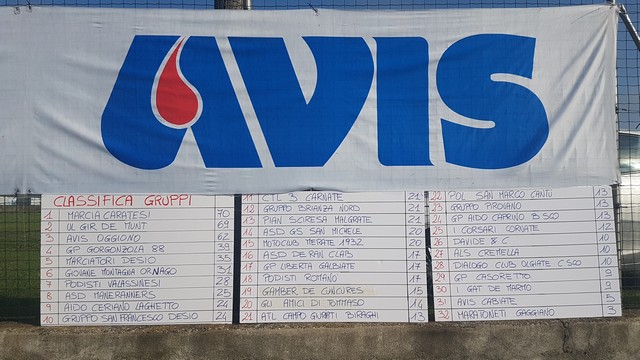 AVIS
CLASSIFICA GRUPPI
1 MARCIA CARATESI 70
2 UL GIR DE MUNT 69
3 AVIS OGGIONO 62
4 GP GORGONZOLA 88 39
5 MARCIATORI DESIO 35
6 GIOVANE MONTAGNA ORNAGO 31
7 PODISTI VALASSINESI 28
8 ASD MANERANNERS 25
9 AIDO CERIANO LAGHETTO
10 GRUPPO SAN FRANCESCO DESIO 24
11 CTL 3 CARNATE 21
12 GRUPPO BRIANZA NORD 21
13 PIAN SCIRESA MALGRATE 21
14 ASD GS SAN MICHELE 20
15 MOTOCLUB MERATE 1932 20
16 ASD DE RAN CLAB 17
17 GP LIBERTA GALBIATE 17
18 PODISTI ROMANO 17
19 GAMBER DE CUNCURES
20 GLI AMICI DI TOMMASO 14
21 ATL CAMPO GIURATI BIRAGHI 13
22 POL SAN MARCO CANTÙ 13
23 GRUPPO PIROVANO 13
24 GP AIDO CAPRINO B.SCO 13
25 I CORSARI CORNATE 12
26 DAVIDE & C 10
27 ALS CREMELLA 10
28 DIALOGO CLUB OLGIATE C.SCO 10
29 GP CASORETTO 9
30 I GAT DE MARMO 9
31 AVIS CABIATE 5
32 MARATONETI GAGGIANO 3